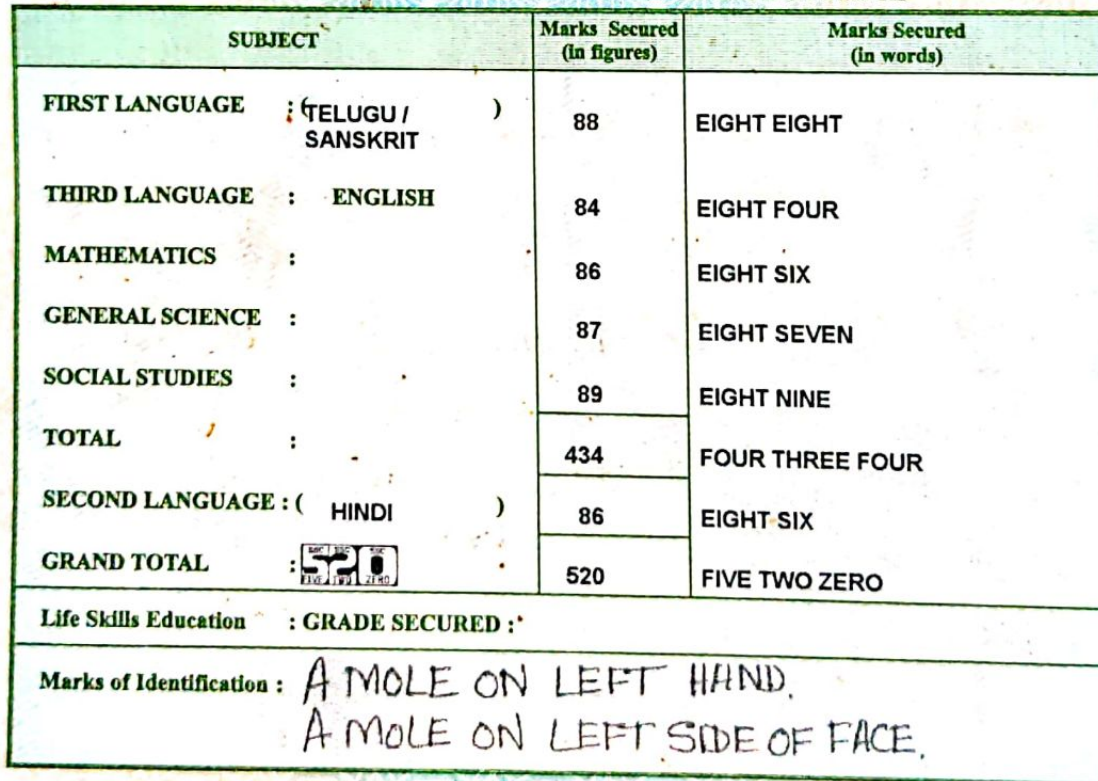 SUBJECT Marks Secured (in figures) Marks Secured (in words)
FIRST LANGUAGE : (TELUGU / SANSKRIT ) 88 EIGHT EIGHT
THIRD LANGUAGE : ENGLISH 84 EIGHT FOUR
MATHEMATICS : 86 EIGHT SIX
GENERAL SCIENCE : 87 EIGHT SEVEN
SOCIAL STUDIES : 89 EIGHT NINE
TOTAL : 434 FOUR THREE FOUR
SECOND LANGUAGE : ( HINDI ) 86 EIGHT SIX
GRAND TOTAL : 520 FIVE TWO ZERO 520 FIVE TWO ZERO
Life Skills Education : GRADE SECURED :
Marks of Identification : A MOLE ON LEFT HAND.
A MOLE ON LEFT SIDE OF FACE.